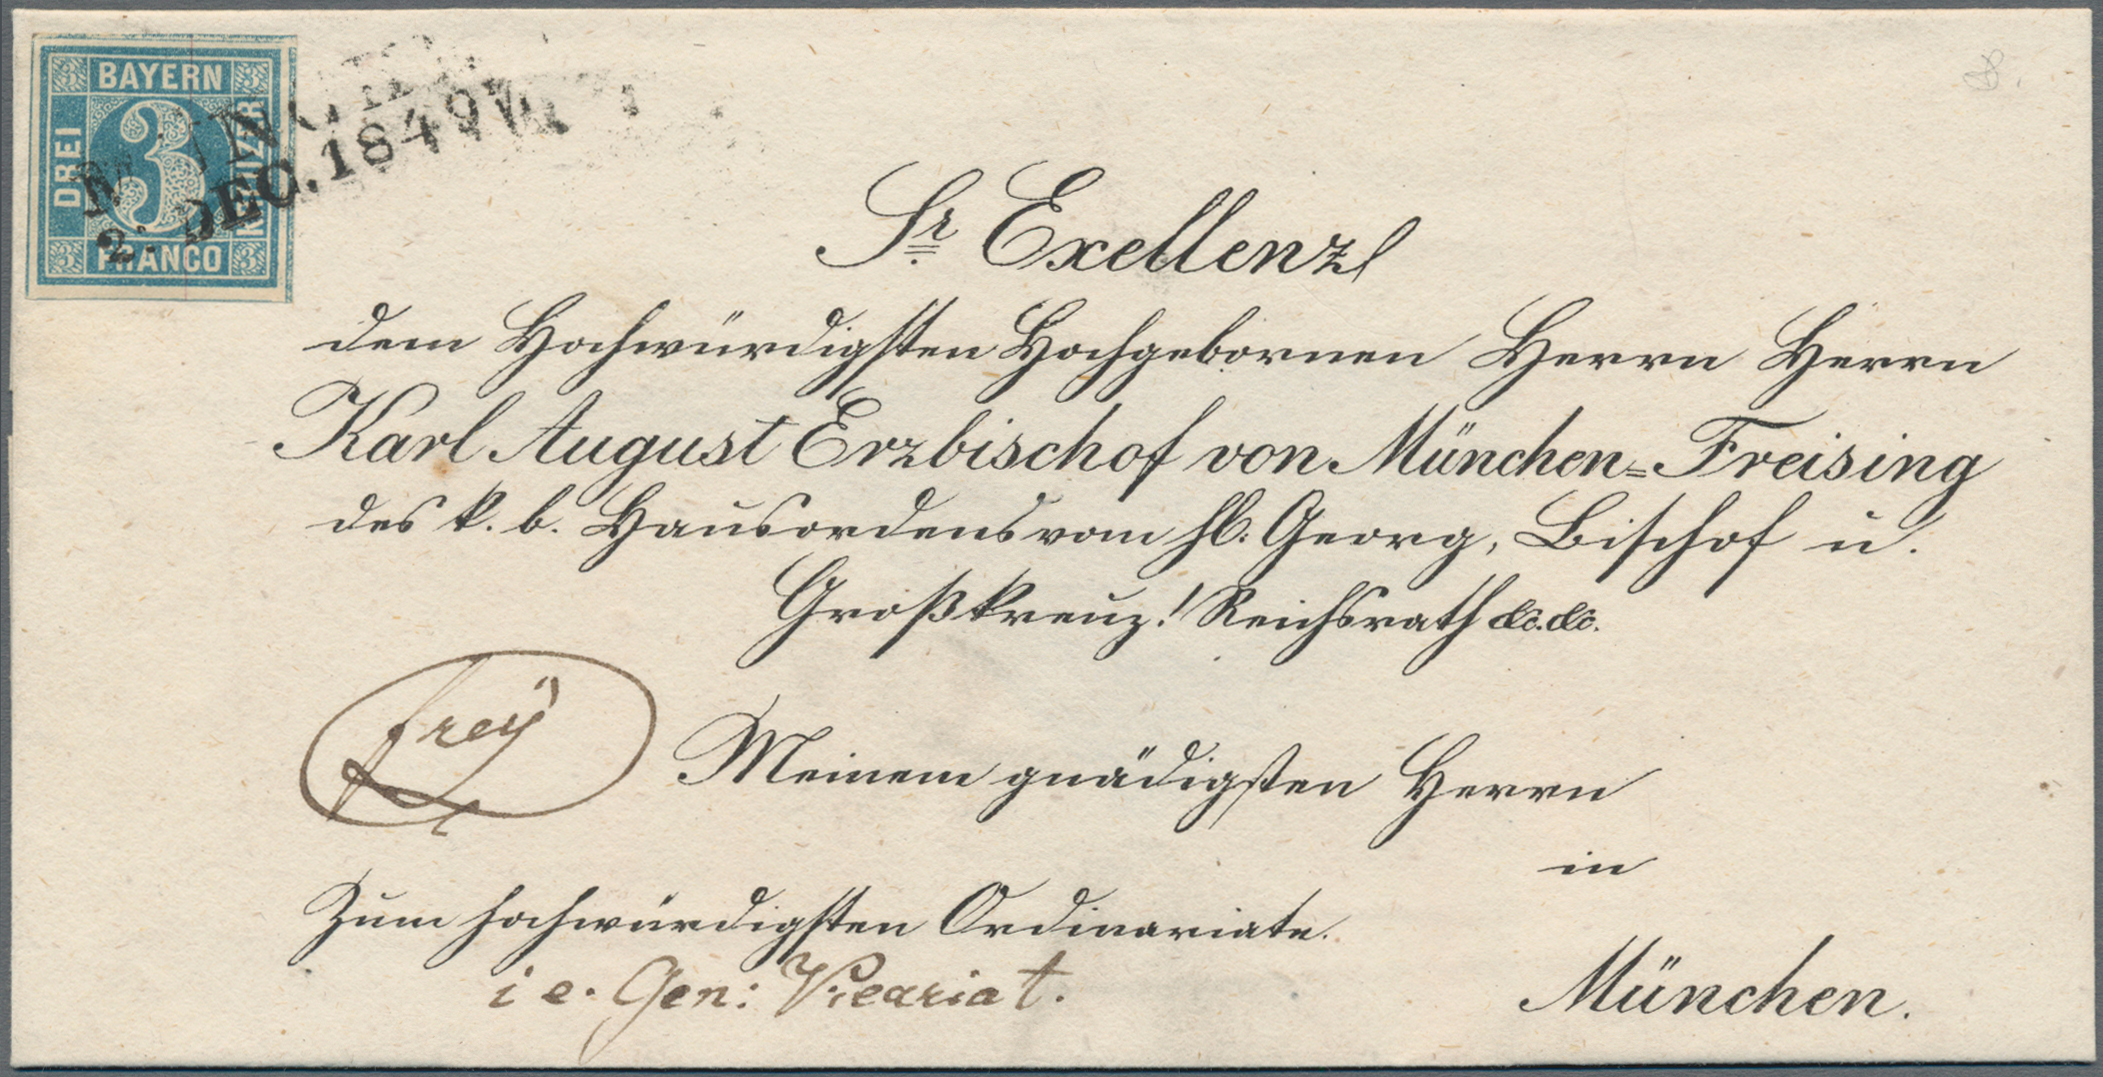 BAYERN
DREI
3
KREUZER
FRANCO
3
3
3
3
2. DEC. 1849
Sr. Exellenz
dem Hochwürdigsten Hochgebornen Herrn Herrn
Karl August Erzbischof von München=Freising
des k. b. Hausordens vom hl. Georg, Bischof u.
Großkreuz! Reichsrath &c. &c.
frey
Meinem gnädigsten Herrn
in
Zum hochwürdigsten Ordinariate.
i e. Gen: Vicariat.
München.